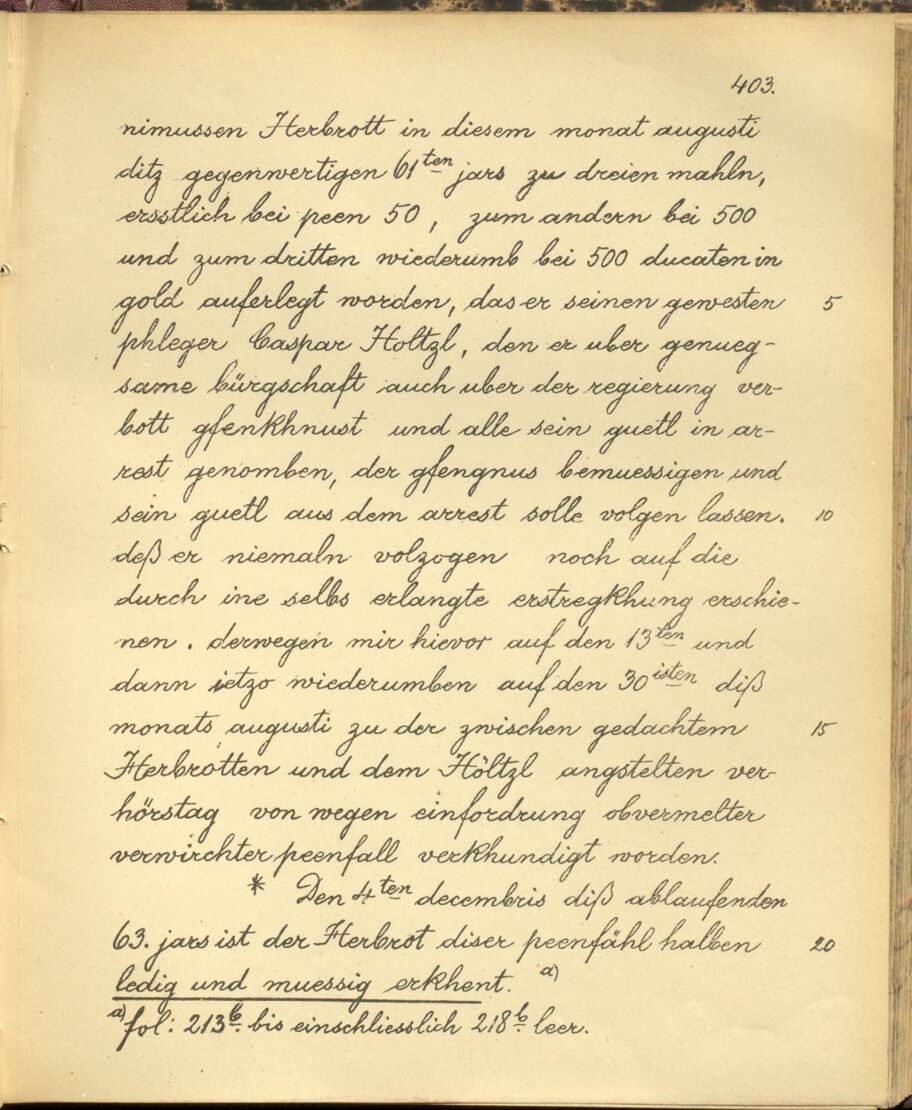 403.
nimussen Herbrott in diesem monat augusti
ditz gegenwertigen 61ten jars zu dreien mahln,
ersstlich bei peen 50, zum andern bei 500
und zum dritten wiederumb bei 500 ducaten in
gold auferlegt worden, das er seinen gewesten 5
phleger Caspar Holtzl, den er uber genueg-
same bürgschaft auch uber der regierung ver-
bott gfenkhnust und alle sein guetl in ar-
rest genomben, der gfengnus bemuessigen und
sein guetl aus dem arrest solle volgen lassen. 10
deß er niemaln volzogen noch auf die
durch ine selbs erlangte erstregkhung erschie-
nen. derwegen mir hievor auf den 13ten und
dann ietzo wiederumben auf den 30isten diß
monats augusti zu der zwischen gedachtem 15
Herbrotten und dem Höltzl angstelten ver-
hörstag von wegen einfordrung obvermelter
verwirchter peenfall verkhundigt worden.
* Den 4ten decembris diß ablaufenden
63. jars ist der Herbrot diser peenfähl halben 20
ledig und muessig erkhent. a)
a) fol: 213b. bis einschliesslich 218b. leer.